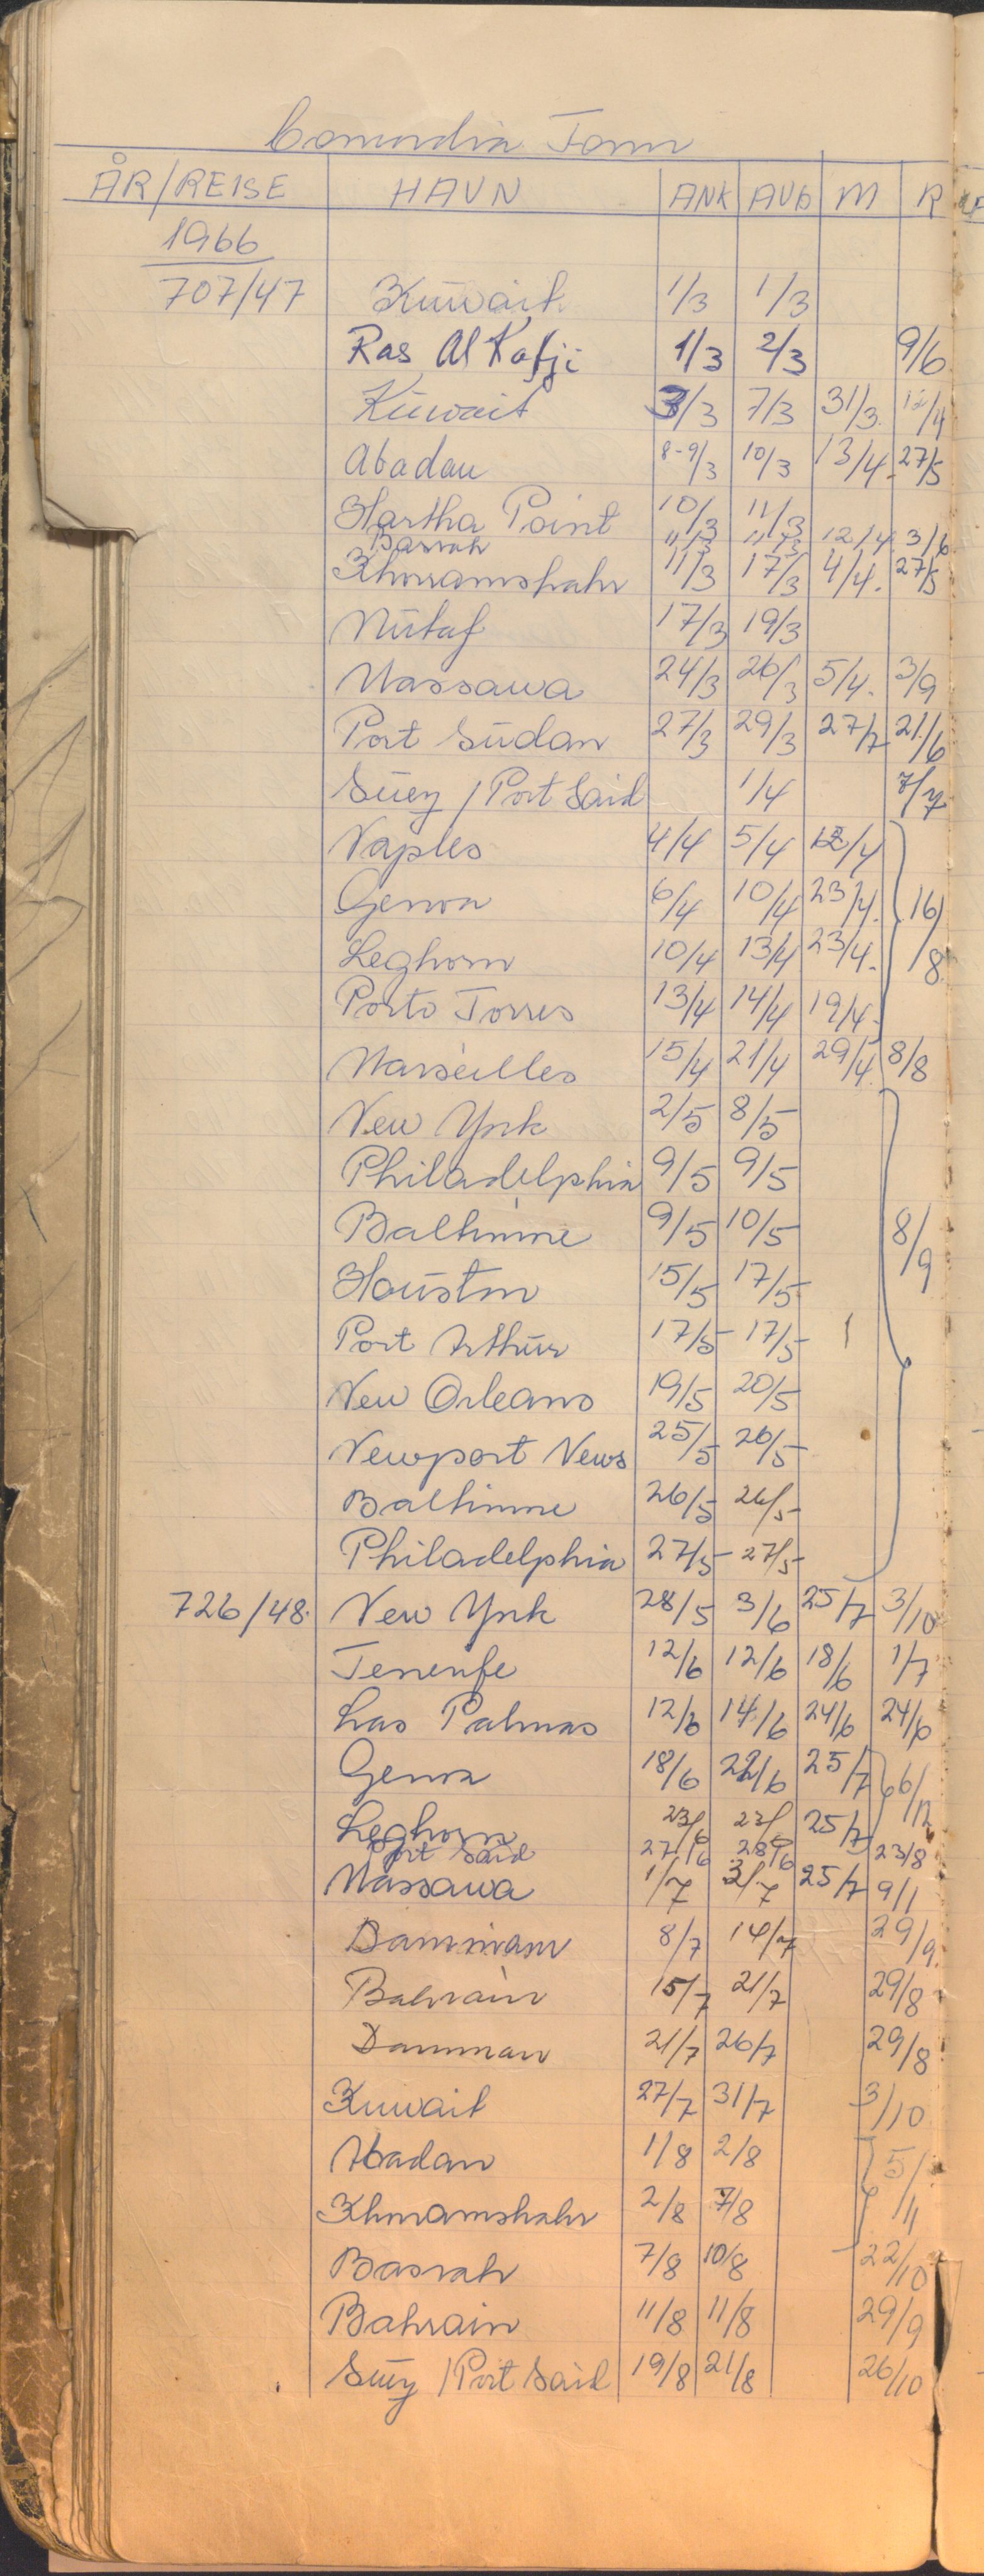 Concordia Fonn
ÅR/REISE HAVN ANK AVG M R
1966
707/47 Kuwait 1/3 1/3
Ras Al Kafji 1/3 2/3 9/6
Kuwait 3/3 7/3 31/3. 12/4
Abadan 8-9/3 10/3 13/4. 27/5
Hartha Point 10/3 11/3
Basrah 11/3 11/3 12/4. 3/6
Khorramshahr 11/3 17/3 4/4. 27/5
Mutaf 17/3 19/3
Massawa 24/3 26/3 5/4. 3/9
Port Sudan 27/3 29/3 27/7 21/6
Suez / Port Said 1/4 7/7
Naples 4/4 5/4 12/4
Genoa 6/4 10/4 23/4. 16/8
Leghorn 10/4 13/4 23/4.
Porto Torres 13/4 14/4 19/4.
Marseilles 15/4 21/4 29/4. 8/8
New York 2/5 8/5
Philadelphia 9/5 9/5
Baltimore 9/5 10/5 8/9
Houston 15/5 17/5
Port Arthur 17/5 17/5
New Orleans 19/5 20/5
Newport News 25/5 26/5
Baltimore 26/5 26/5
Philadelphia 27/5 27/5
726/48. New York 28/5 3/6 25/7 3/10
Tenerife 12/6 12/6 18/6 1/7
Las Palmas 12/6 14/6 24/6 24/6
Genoa 18/6 22/6 25/7 6/12
Leghorn 23/6 23/6 25/7
Port Said 27/6 28/6 23/8
Massawa 1/7 3/7 25/7 9/1
Dammam 8/7 14/7 29/9.
Bahrain 15/7 21/7 29/8
Dammam 21/7 26/7 29/8
Kuwait 27/7 31/7 3/10
Abadan 1/8 2/8 5/11
Khorramshahr 2/8 7/8
Basrah 7/8 10/8 22/10
Bahrain 11/8 11/8 29/9
Suez / Port Said 19/8 21/8 26/10